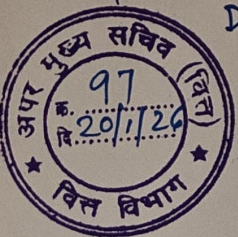 अपर मुख्य सचिव (वित्त)
क्र. 97
दि. 20/1/26
★ वित्त विभाग ★